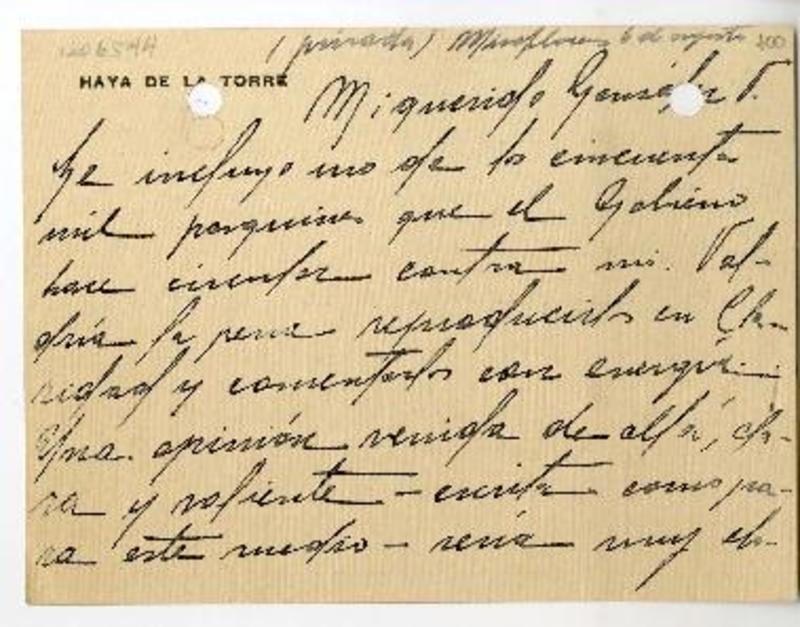 1206544
(privada) Miraflores 6 de agosto 400
HAYA DE LA TORRE
Mi querido González V.
Le incluyo uno de los cincuenta
mil pasquines que el Gobierno
hace circular contra mi. Val-
dría la pena reproducirlo en Cla-
ridad y comentarlos con energía.
Una opinión venida de allá, cla-
ra y valiente - escrita como pa-
ra este medio - sería muy